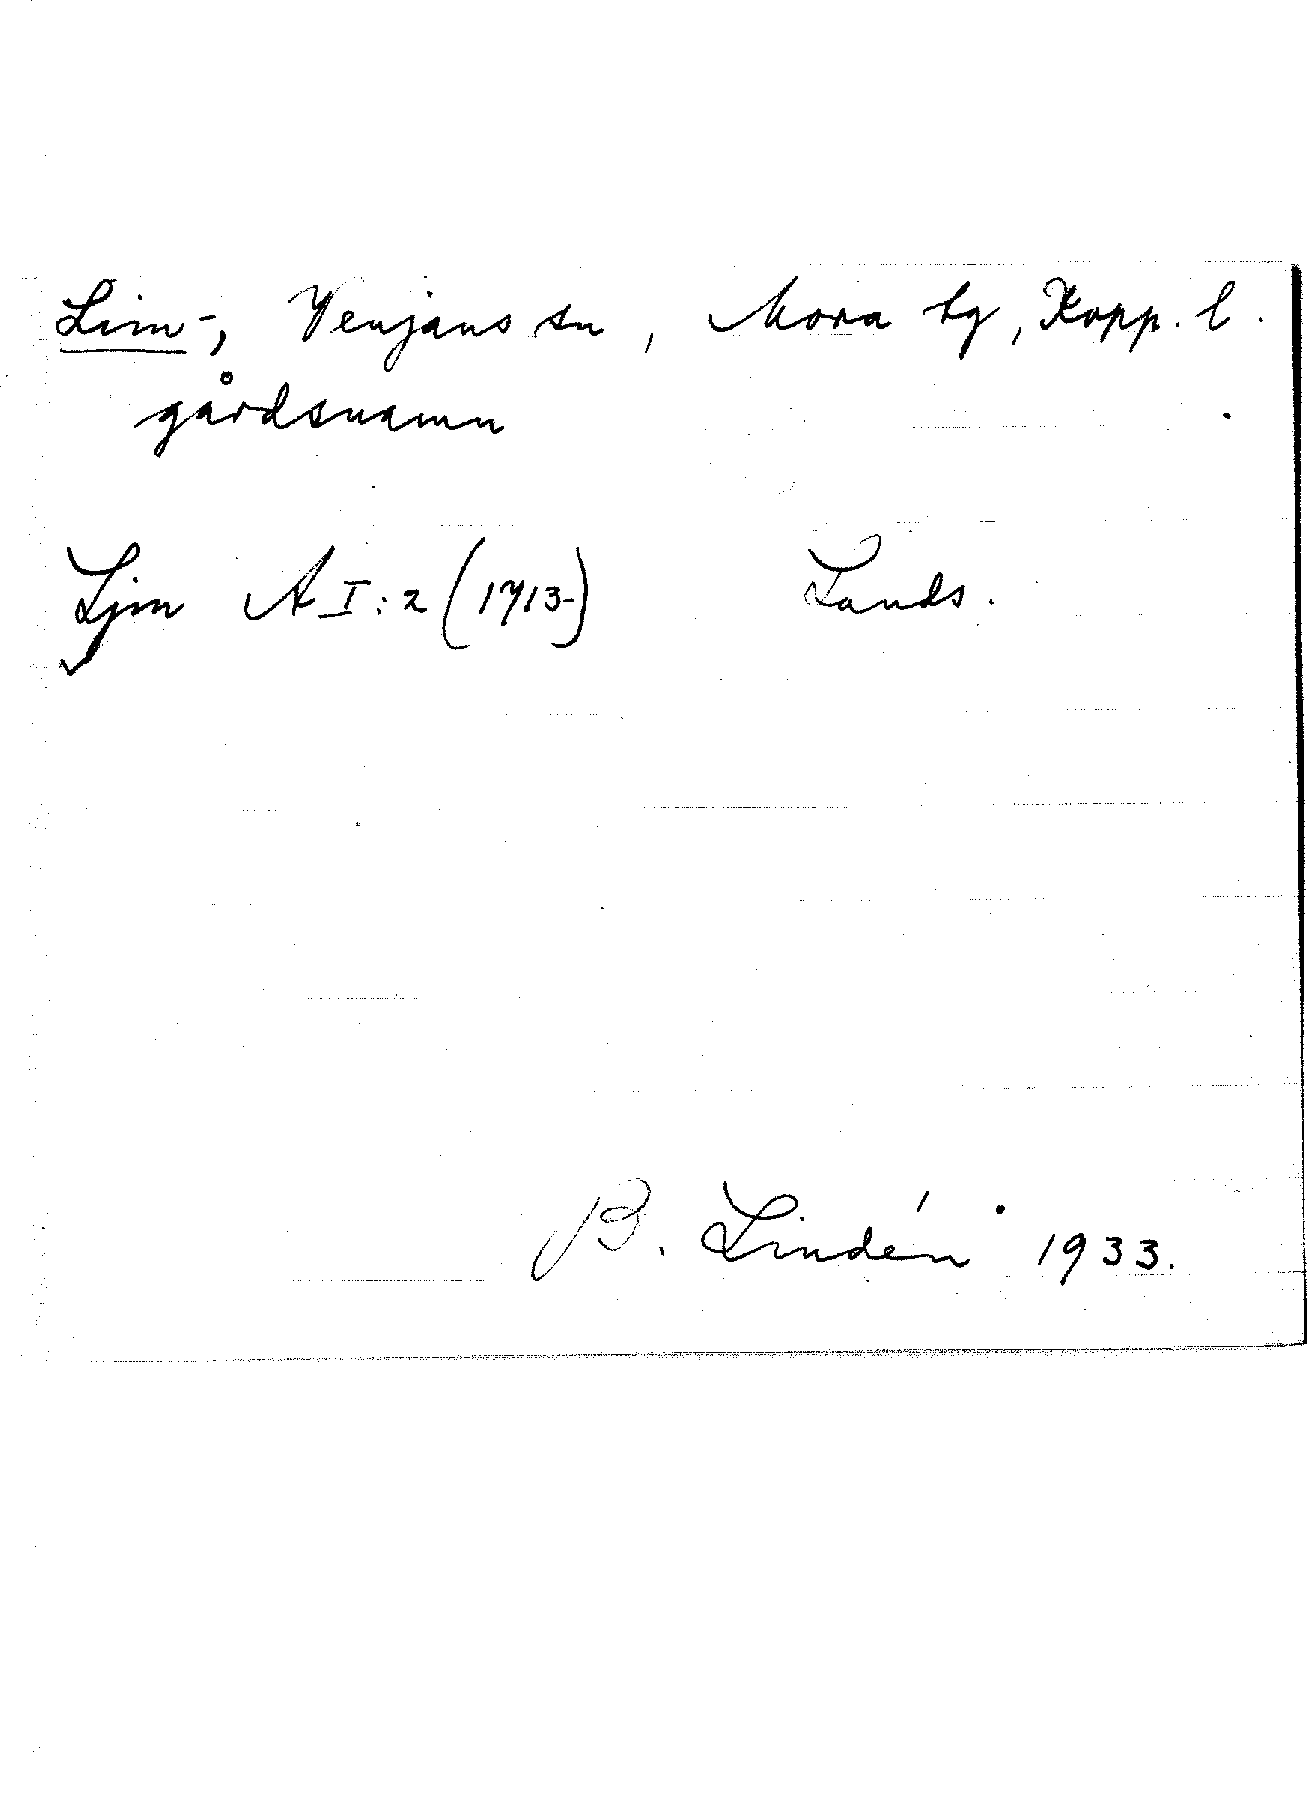 Lim-, Venjans sn, Mora tg, Kopp. l.
gårdsnamn
Ljm AI:2 (1713-) Lands.
B. Lindén 1933.